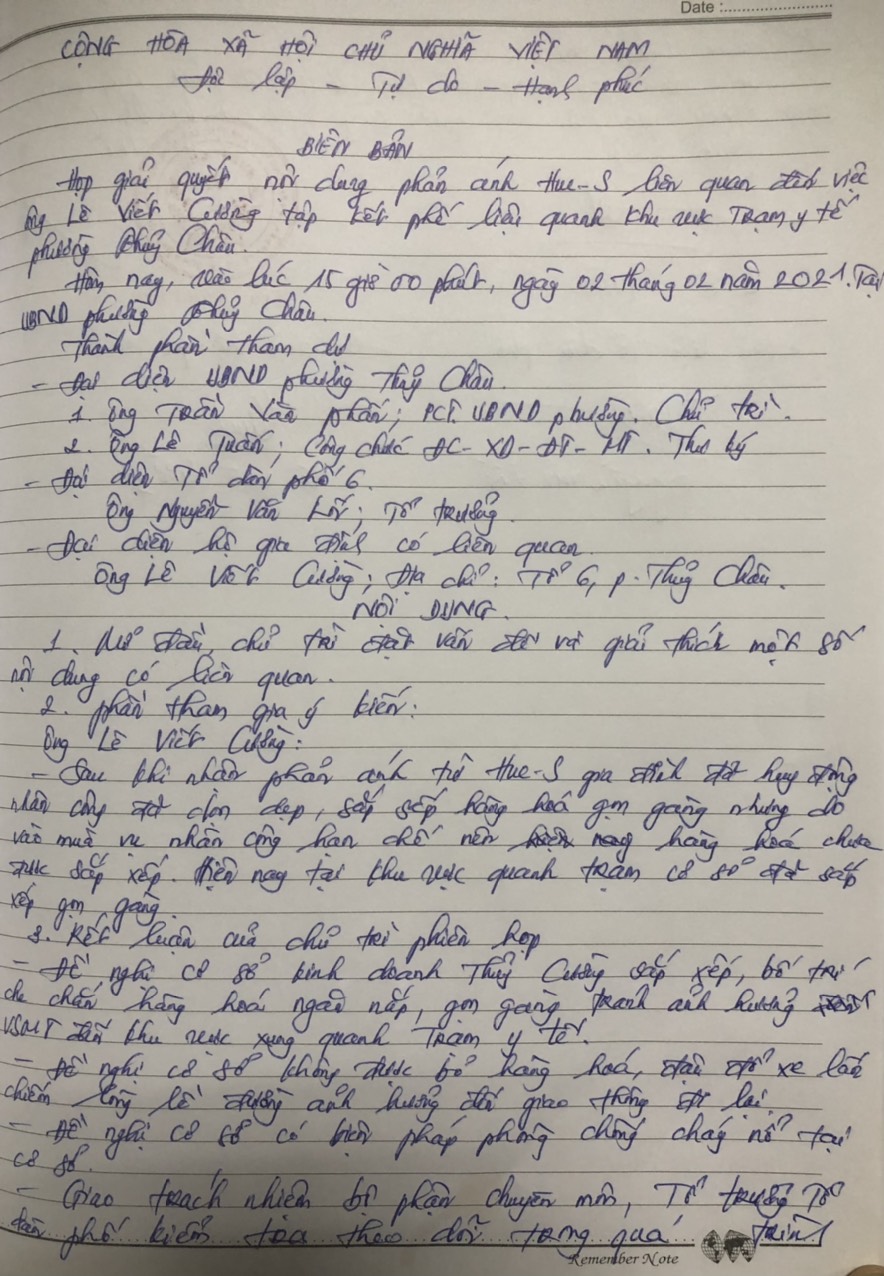 Date :
CỘNG HÒA XÃ HỘI CHỦ NGHĨA VIỆT NAM
Độc lập - Tự do - Hạnh phúc
BIÊN BẢN
Họp giải quyết nội dung phản ánh Hue-S liên quan đến việc
ông Lê Viết Cường tập kết phế liệu quanh khu vực Trạm y tế
phường Thủy Châu.
Hôm nay, vào lúc 15 giờ 00 phút, ngày 02 tháng 02 năm 2021. Tại
UBND phường Thủy Châu.
Thành phần tham dự
- Đại diện UBND phường Thủy Châu.
1. Ông Trần Văn Phấn; PCT. UBND phường. Chủ trì.
2. Ông Lê Tuấn; Công chức ĐC - XD - ĐT - MT. Thư ký
- Đại diện Tổ dân phố 6.
Ông Nguyễn Văn; Tổ trưởng.
- Đại diện hộ gia đình có liên quan.
Ông Lê Viết Cường; Địa chỉ: Tổ 6, p. Thủy Châu.
NỘI DUNG.
1. Mở đầu, chủ trì đặt vấn đề và giải thích một số
nội dung có liên quan.
2. phần tham gia ý kiến:
Ông Lê Viết Cường:
- Sau khi nhận phản ánh từ Hue-S gia đình đã huy động
nhân công đã dọn dẹp, sắp xếp hàng hoá gọn gàng nhưng do
vào mùa vụ nhân công hạn chế nên hàng hoá chưa
được sắp xếp. Hiện nay tại khu vực quanh trạm cơ sở đã sắp
xếp gọn gàng.
3. Kết luận của chủ trì phiên họp
- Đề nghị cơ sở kinh doanh Thủy Cường sắp xếp, bố trí
che chắn hàng hoá ngăn nắp, gọn gàng tránh ảnh hưởng
VSMT đến khu vực xung quanh Trạm y tế.
- Đề nghị cơ sở không được bỏ hàng hoá, đậu đỗ xe lấn
chiếm lòng lề đường ảnh hưởng đến giao thông đi lại.
- Đề nghị cơ sở có biện pháp phòng chống cháy nổ tại
cơ sở.
- Giao trách nhiệm bộ phận chuyên môn, Tổ trưởng Tổ
dân phố kiểm tra theo dõi trong quá trình
Remember Note